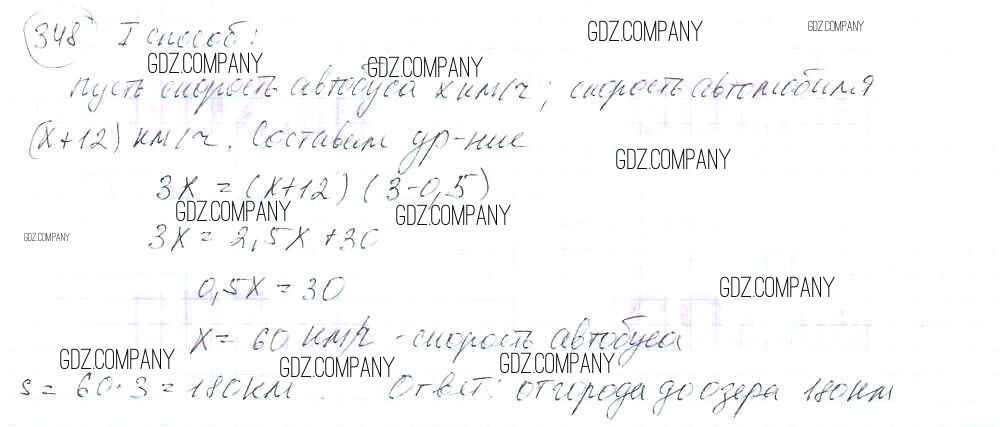 348 I способ:
Пусть скорость автобуса x км/ч; скорость автомобиля
(x+12) км/ч. Составим ур-ние
3x = (x+12) (3-0,5)
3x = 2,5x + 30
0,5x = 30
x = 60 км/ч - скорость автобуса
s = 60·3 = 180 км. Ответ: от города до озера 180 км
GDZ.COMPANY
GDZ.COMPANY
GDZ.COMPANY
GDZ.COMPANY
GDZ.COMPANY
GDZ.COMPANY
GDZ.COMPANY
GDZ.COMPANY
GDZ.COMPANY
GDZ.COMPANY
GDZ.COMPANY
GDZ.COMPANY